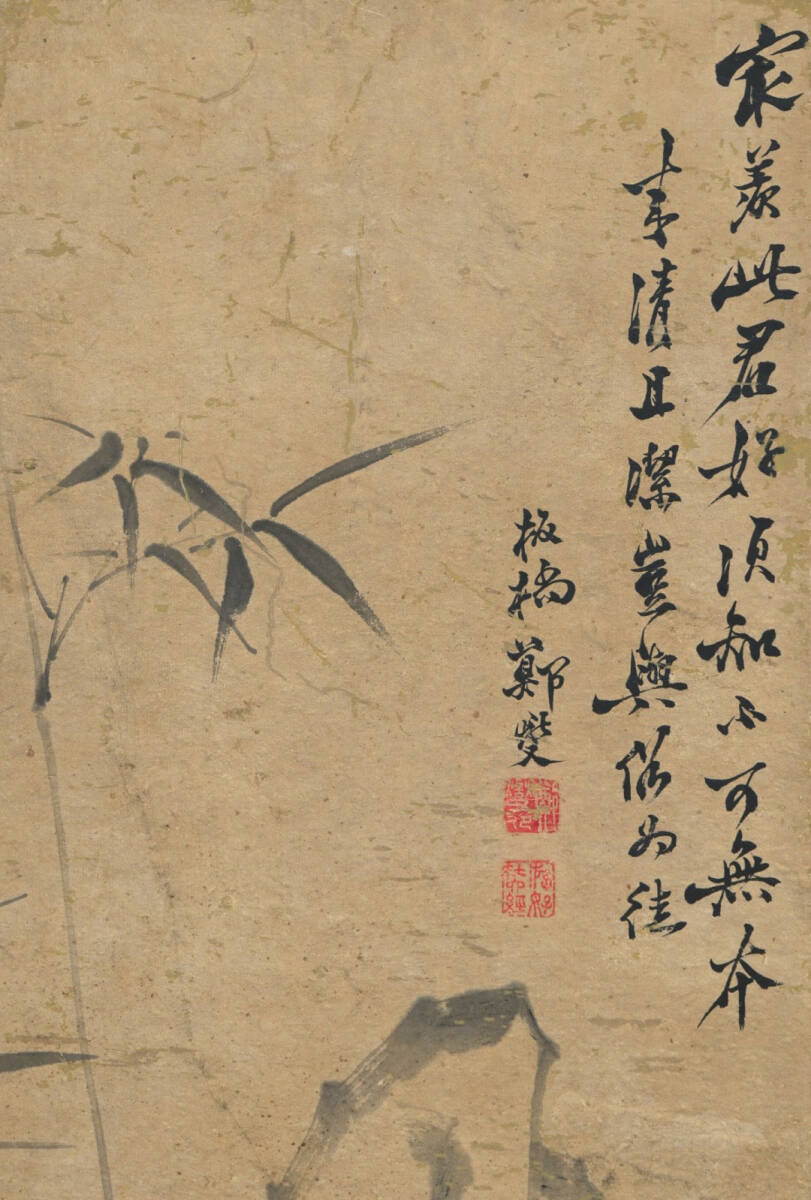 最羨此君好須知不可無本
来清且潔豈與俗為徒
板橋鄭燮